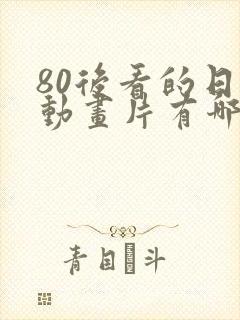 80後看的日
動畫片有哪
青自 斗